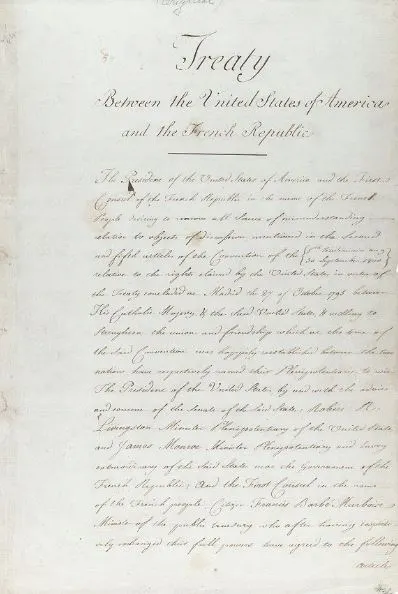 (Original)
Treaty
Between the United States of America
and the French Republic
The President of the United States of America and the First
Consul of the French Republic in the name of the French
People desiring to remove all Source of misunderstanding
relative to objects of discussion mentioned in the Second
and fifth articles of the Convention of the
30 September 1800
relative to the rights claimed by the United States in virtue of
the Treaty concluded at Madrid the 27 of October 1795 between
His Catholic Majesty, & the Said United States, & willing to
Strengthen the union and friendship which at the time of
the Said Convention was happily reestablished between the two
nations have respectively named their Plenipotentiaries to wit
The President of the United States, by and with the advice
and consent of the Senate of the Said States; Robert R.
Livingston Minister Plenipotentiary of the United States
and James Monroe Minister Plenipotentiary and Envoy
extraordinary of the Said States near the Government of the
French Republic; And the First Consul in the name
of the French people, Citizen Francis Barbé Marbois
Minister of the public treasury who after having respec-
tively exchanged their full powers have agreed to the following
articles